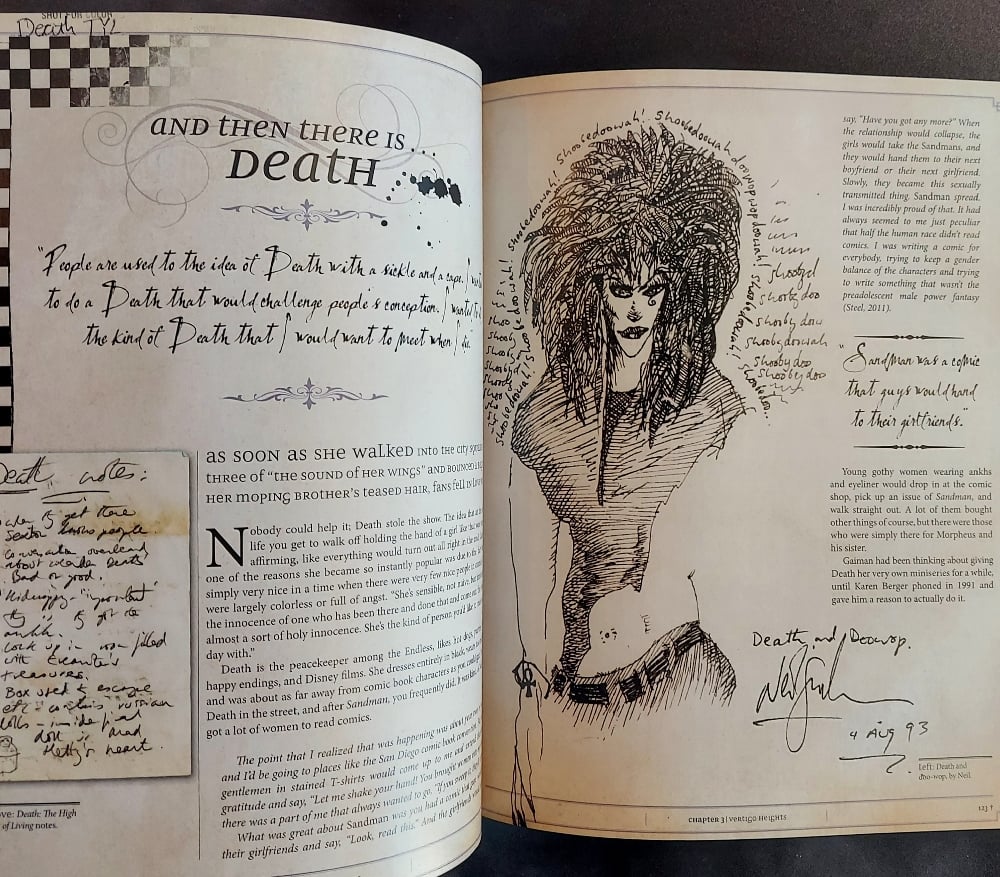 SHOT FOR COLOR
Death TYL
AND THEN THERE IS...
DEATH
"People are used to the idea of Death with a sickle and a cape. I
to do a Death that would challenge people's conception. I wanted to
the kind of Death that I would want to meet when I die."
Death notes:
get there
people
conversation overheard
about
Bad or good.
Kidnapping - important
to get the
ankh.
Lock up in room filled
with
treasures.
Box used to escape
contains russian
dolls - inside final
doll is
Hetty's heart.
ove: Death: The High
of Living notes.
AS SOON AS SHE WALKED INTO THE CITY
THREE OF "THE SOUND OF HER WINGS" AND BOUNCED A
HER MOPING BROTHER'S TEASED HAIR, FANS FELL IN
Nobody could help it; Death stole the show. The idea that at the
life you get to walk off holding the hand of a girl like
affirming, like everything would turn out all right in the
one of the reasons she became so instantly popular was
simply very nice in a time when there were very few nice people
were largely colorless or full of angst. "She's sensible, not naive, but
the innocence of one who has been there and done that and
almost a sort of holy innocence. She's the kind of person you'd like
day with."
Death is the peacekeeper among the Endless, likes hot dogs,
happy endings, and Disney films. She dresses entirely in black,
and was about as far away from comic book characters as you
Death in the street, and after Sandman, you frequently did. It was
got a lot of women to read comics.
The point that I realized that was happening was about
and I'd be going to places like the San Diego comic book convention,
gentlemen in stained T-shirts would come up to me and
gratitude and say, "Let me shake your hand! You brought women
there was a part of me that always wanted to go, "If you
What was great about Sandman was you had a comic
their girlfriends and say, "Look, read this." And the girlfriends would
Shoobedoowah! Shoobedoowah! doowopwop
Shoobedoowah!
shoobyd
shooby doo
shooby dow
shoobydoowah
shooby doo
shooby doo
say, "Have you got any more?" When
the relationship would collapse, the
girls would take the Sandmans, and
they would hand them to their next
boyfriend or their next girlfriend.
Slowly, they became this sexually
transmitted thing. Sandman spread.
I was incredibly proud of that. It had
always seemed to me just peculiar
that half the human race didn't read
comics. I was writing a comic for
everybody, trying to keep a gender
balance of the characters and trying
to write something that wasn't the
preadolescent male power fantasy
(Steel, 2011).
"Sandman was a comic
that guys would hand
to their girlfriends."
Young gothy women wearing ankhs
and eyeliner would drop in at the comic
shop, pick up an issue of Sandman, and
walk straight out. A lot of them bought
other things of course, but there were those
who were simply there for Morpheus and
his sister.
Gaiman had been thinking about giving
Death her very own miniseries for a while,
until Karen Berger phoned in 1991 and
gave him a reason to actually do it.
Death and Doowop.
4 AUG 93
Left: Death and
doo-wop, by Neil.
CHAPTER 3 | VERTIGO HEIGHTS
123